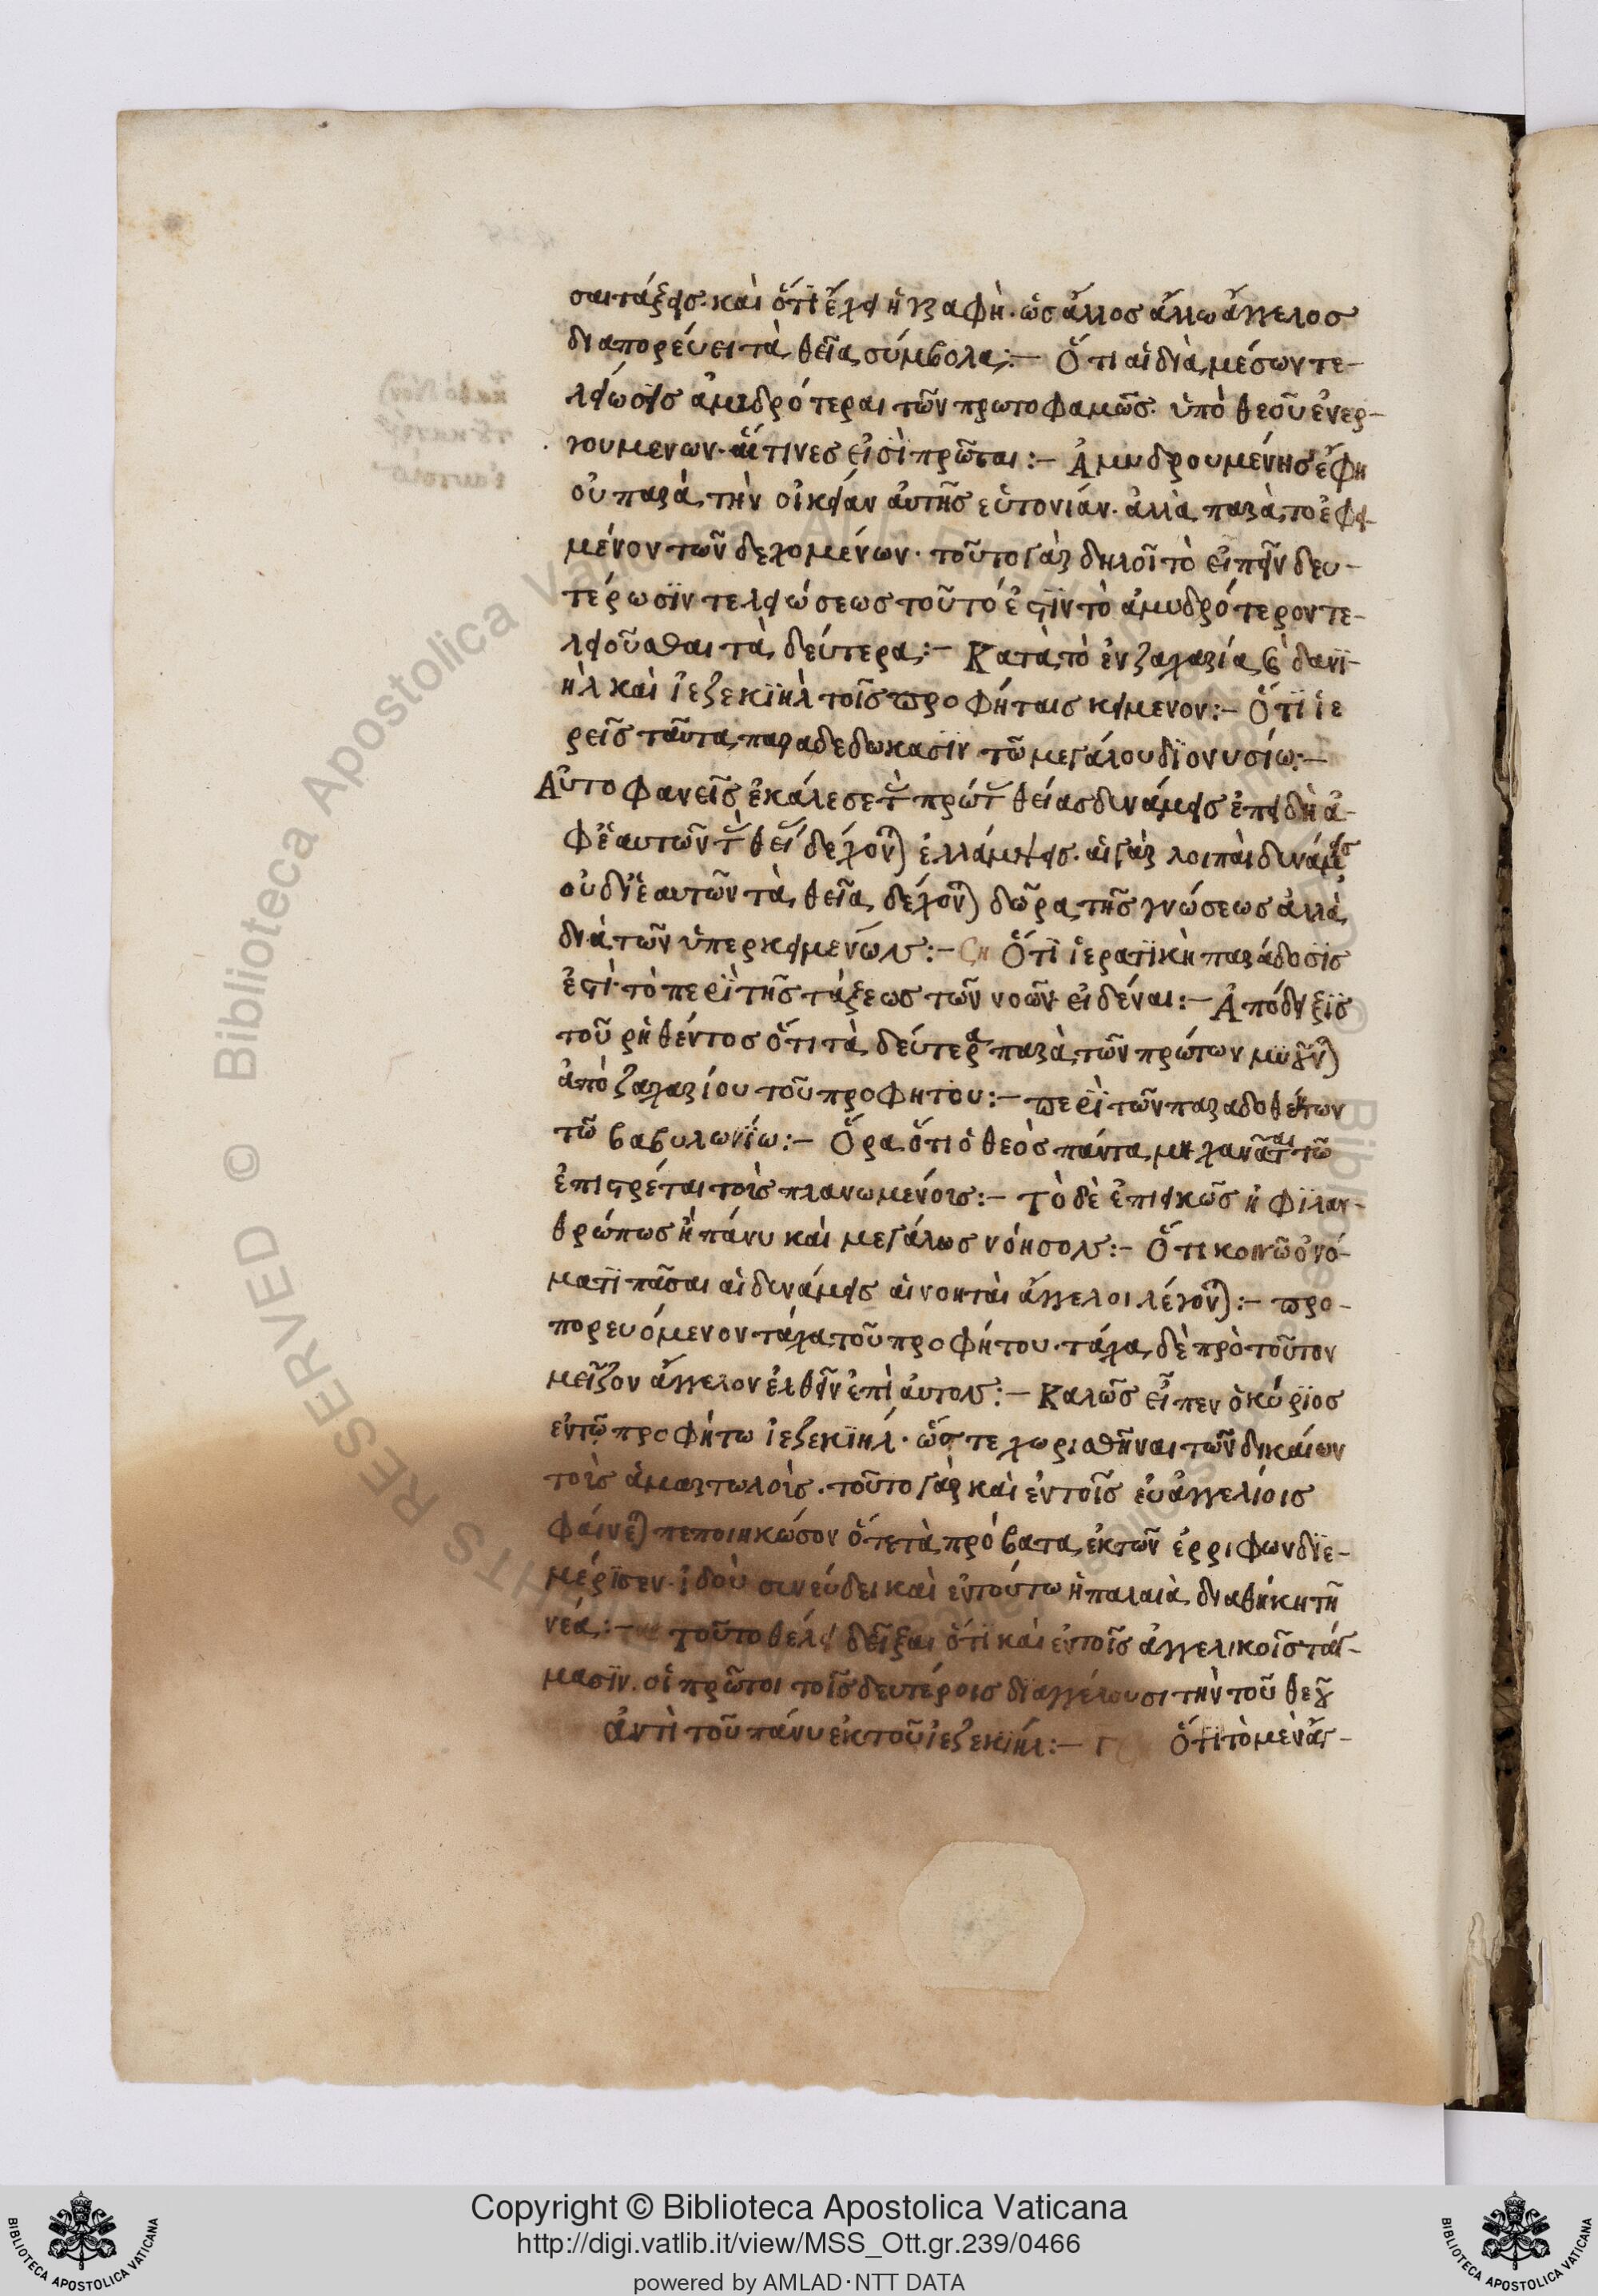 σαι τάξεις. καὶ ὅτι ἔχει ἡ γραφὴ. ὡς ἄλλος ἄλλω ἄγγελος
διαπορεύει τὰ θεῖα σύμβολα:— Ὅτι αἱ διὰ μέσων τε-
λειώσεις ἀμυδρότεραι τῶν πρωτοφαμῶς. ὑπὸ θεοῦ ἐνερ-
γουμενων. αἵτινες εἰσὶ πρῶται:— Ἀμυδρουμένης ἔφη
οὐ παρὰ τὴν οἰκείαν αὐτῆς εὐτονίαν. ἀλλὰ παρὰ το ἐφει-
μένον τῶν δεχομένων. τοῦτο γὰρ δηλοῖ τὸ εἰπεῖν δευ-
τέρωσϊν τελειώσεως τοῦτό ἐστϊν τὸ ἀμυδρότερον τε-
λειοῦσθαι τὰ δεύτερα:— Κατὰ τὸ ἐν ζαχαρία κ δανϊ-
ὴλ καὶ ἰεζεκϊὴλ τοῖς προφήταις κείμενον:— Ὅτϊ ἱε
ρεῖς ταῦτα παραδεδωκασϊν τῶ μεγάλου δϊονυσίω:—
Αὐτοφανεῖς ἐκάλεσε τ πρώτ θείας δυνάμεις ἐπειδὴ ἀ-
φ ἑαυτῶν τ θεί δέχον) ἐλλάμψεις. αἱ γὰρ λοιπαὶ δυνάμεις
οὐ δϊ ἑαυτῶν τὰ θεῖα δέχον) δῶρα τῆς γνώσεως ἀλλὰ
διὰ τῶν ὑπερκειμενων:— Ὅτϊ ἱερατϊκὴ παράδοσϊς
ἐστὶ. τὸ περϊ τῆς τάξεως τῶν νοῶν εἰδέναι:— Ἀπόδειξϊς
τοῦ ῥηθέντος ὅτι τὰ δεύτερα παρὰ τῶν πρώτων μυοῦν)
ἀπὸ ζαχαρίου τοῦ προφητου:— περϊ τῶν παραδοθέντων
τῶ βαβυλωνϊω:— Ὅρα ὅτι ὁ θεὸς πάντα μηχανᾶται τῶ
ἐπιστρέται τοῖς πλανωμένοις:— τὸ δὲ ἐπιεικῶς ἢ φϊλαν-
θρώπως ἢ πάνυ καὶ μεγάλως νόησον:— Ὅτι κοινῶ ὀνό-
ματϊ πᾶσαι αἱ δυνάμεις αἱ νοηταὶ ἄγγελοι λέγον):— προ-
πορευόμενον τάχα τοῦ προφήτου. τάχα δὲ πρὸ τοῦτον
μεῖζον ἄγγελον ἐλθεῖν ἐπὶ αὐτον:— Καλῶς εἶπεν ὁ κύρϊος
εν τῶ προφήτω ἰεζεκϊήλ. ὥστε χωρισθῆναι τῶν δικαίων
τοῖς ἁμαρτωλοῖς. τοῦτο γὰρ καὶ ἐν τοῖς εὐαγγελίοις
φαίνε) πεποιηκώσον ὅτε τὰ πρόβατα ἐκ τῶν ἐρριφων δϊε-
μέρϊσεν. ἰδοὺ συνεύδει καὶ ἐν τούτω ἡ παλαιὰ διαθήκη τῆ
νέα:— τοῦτο θέλει δεῖξαι ὅτϊ καὶ ἐν τοῖς ἀγγελικοῖς τάγ-
μασϊν. οἱ πρῶτοι τοῖς δευτέροις δϊαγγέλουσι τὴν τοῦ θεοῦ
ἀντὶ τοῦ πάνυ ἐκ τοῦ ἰεζεκϊήλ:— Ὅτϊ τὸ μὲν ἄγ-
© Biblioteca Apostolica Vaticana ALL RIGHTS RESERVED
Copyright © Biblioteca Apostolica Vaticana
http://digi.vatlib.it/view/MSS_Ott.gr.239/0466
powered by AMLAD·NTT DATA
BIBLIOTECA APOSTOLICA VATICANA
BIBLIOTECA APOSTOLICA VATICANA